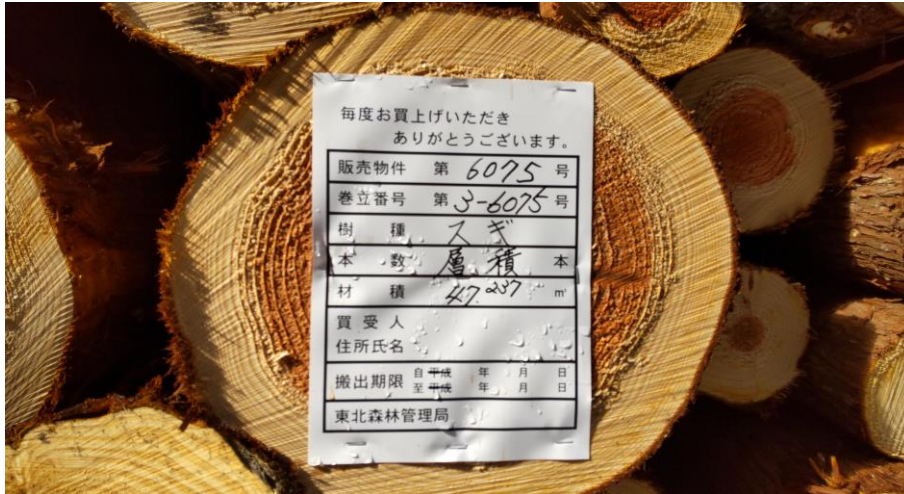 毎度お買上げいただき
ありがとうございます。
販売物件 第 6075 号
巻立番号 第 3-6075 号
樹種 スギ
本数 層積 本
材積 47.237 m³
買受人
住所氏名
搬出期限 自 平成 年 月 日
至 平成 年 月 日
東北森林管理局